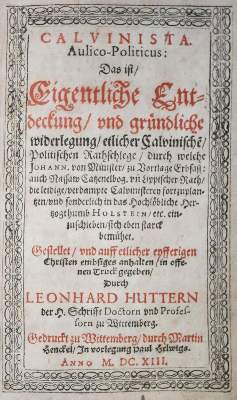 CALVINISTA
Aulico-Politicus:
Das ist/
Eigentliche Ent-
deckung/ und gründliche
widerlegung/ etlicher Calvinische
Politischen Rathschlege/ durch welche
JOHANN. von Münster/ zu Vortlage Erbsaß:
auch Nassaw Catzenelbog. vñ Lippischer Rath/
die leidige/ verdampte Calvinisterey fortzuplan-
tzen/ und sonderlich in das Hochlöbliche Her-
zogthumb HOLSTEIN/ etc. ein-
zuschieben/ sich eben starck
bemühet.
Gestellet/ und auff etlicher eyfferigen
Christen embsiges anhalten/ in offe-
nen Truck gegeben/
Durch
LEONHARD HUTTERN
der H. Schrifft Doctorn und Profes-
sorn zu Wittemberg.
Gedruckt zu Wittemberg/ durch Martin
Henckel/ In vorlegung Paul Helwigs.
ANNO M. DC. XIII.